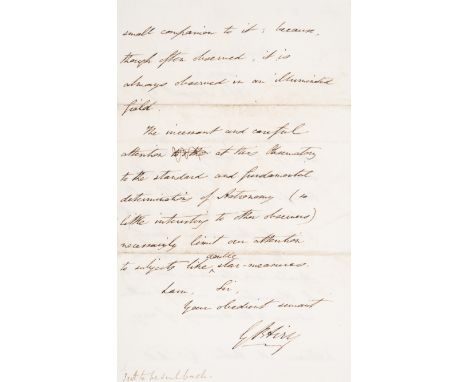 small companion to it: because,
though often observed, it is
always observed in an illuminated
field.
The incessant and careful
attention at this Observatory
to the standard and fundamental
determination of Astronomy (so
little interesting to other observers)
necessarily limit our attention
to subjects like double star-measures.
I am, Sir,
Your obedient servant
G B Airy
Not to be sent back.